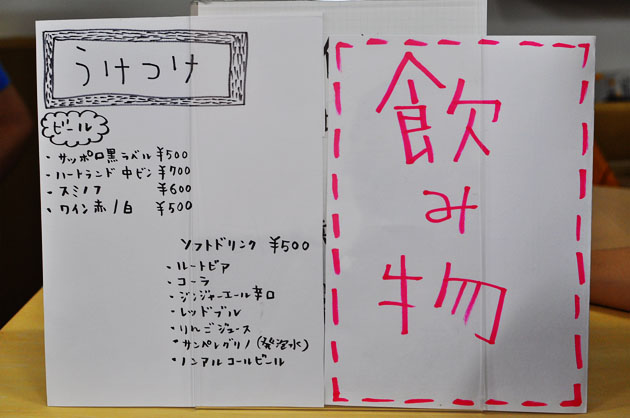 うけつけ
ビール
・サッポロ黒ラベル ¥500
・ハートランド 中ビン ¥700
・スミノフ ¥600
・ワイン赤/白 ¥500
ソフトドリンク ¥500
・ルートビア
・コーラ
・ジンジャーエール辛口
・レッドブル
・りんごジュース
・サンペレグリノ(発泡水)
・ノンアルコールビール
飲
み
物